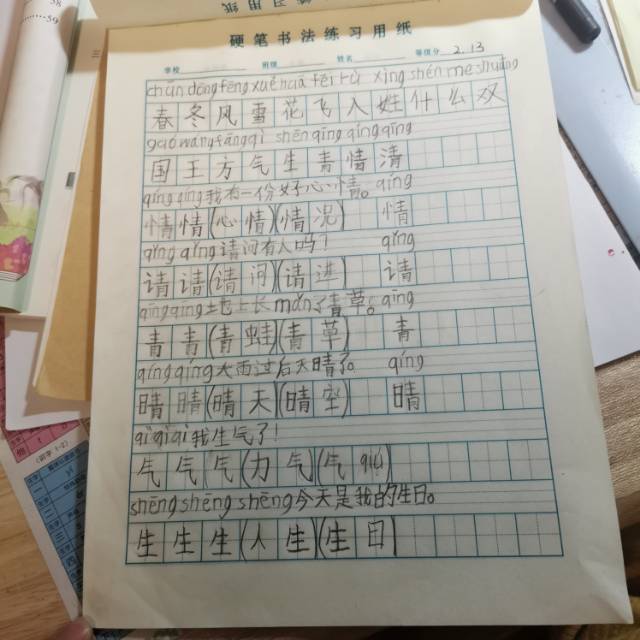 硬笔书法练习用纸
学校 班级 姓名 等级分 2.13
chūn dōng fēng xuě huā fēi rù xìng shén me shuāng
春冬风雪花飞入姓什么双
guó wáng fāng qì shēng qīng qíng qīng
国王方气生青情清
qíng qíng 我有一份好心情。qíng
情情(心情)(情况) 情
qǐng qǐng 请问有人吗? qǐng
请请(请问)(请进) 请
qīng qīng 土地上长 mǎn了青草。qīng
青青(青蛙)(青草) 青
qíng qíng 大雨过后天晴了。 qíng
晴晴(晴天)(晴空) 晴
qì qì qì 我生气了!
气气气(力气)(气
shēng shēng shēng 今天是我的生日。
生生生(人生)(生日)